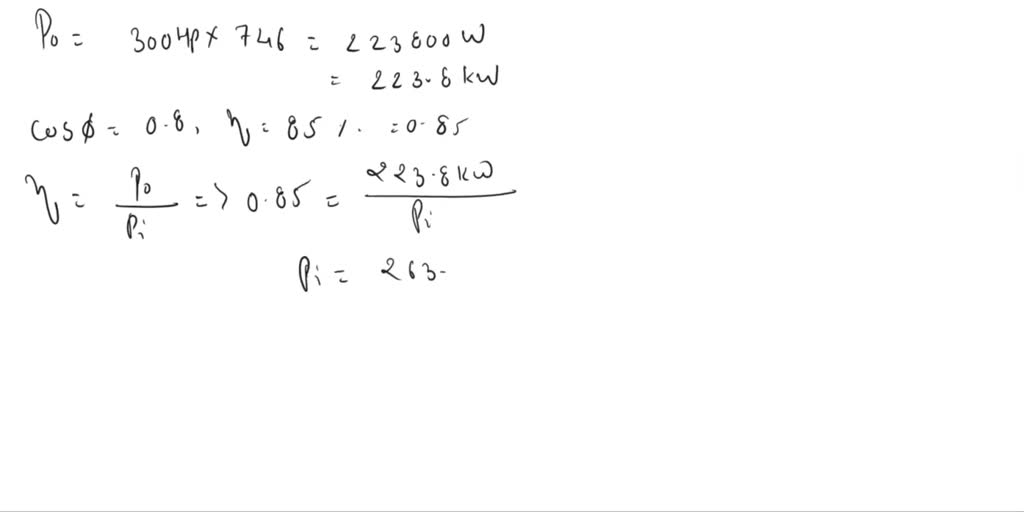 P₀ = 300HP × 746 = 223800 W
= 223.8 kW
cos ϕ = 0.8, η = 85 %. = 0.85
η = P₀/Pᵢ => 0.85 = 223.8 kW/Pᵢ
Pᵢ = 263.